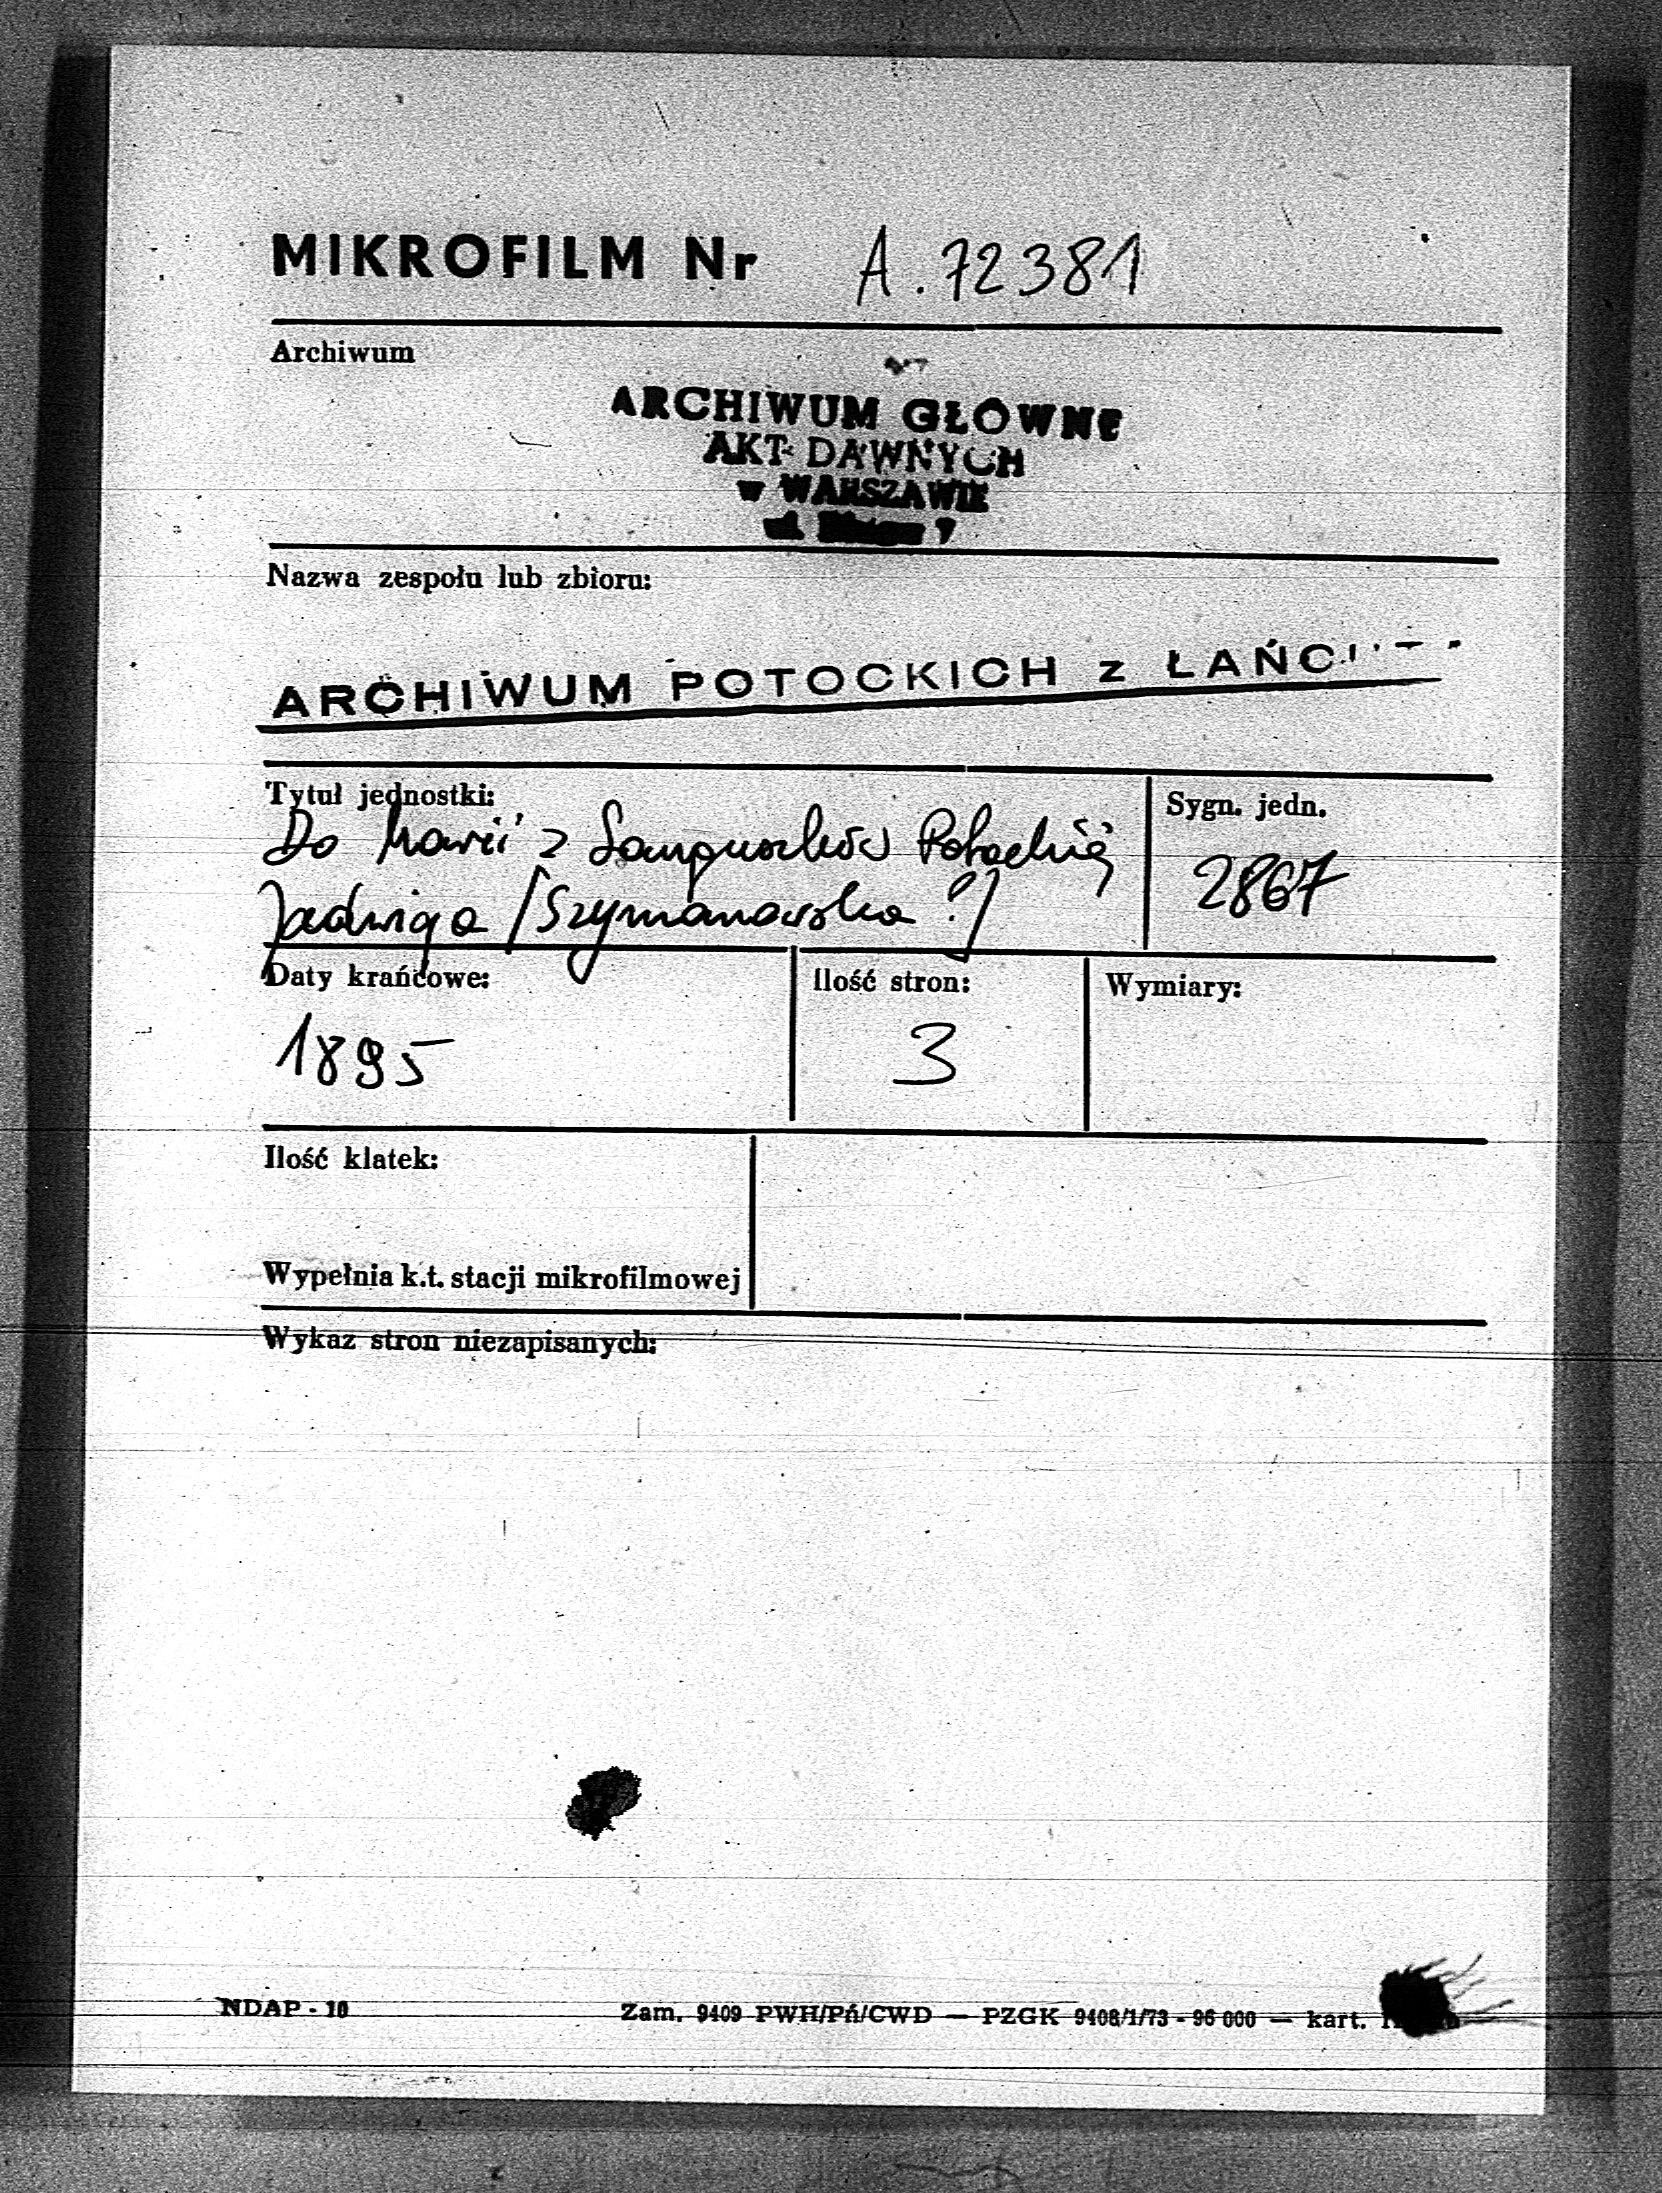 MIKROFILM Nr A. 72381
Archiwum
ARCHIWUM GŁÓWNE
AKT DAWNYCH
w WARSZAWIE
ul. 7
Nazwa zespołu lub zbioru:
ARCHIWUM POTOCKICH z
Tytuł jednostki:
Do Marii z Sanguszków Potockiej
Jadwiga /Szymanowska?/
Sygn. jedn.
2867
Daty krańcowe:
1895
Ilość stron:
3
Wymiary:
Ilość klatek:
Wypełnia k.t. stacji mikrofilmowej
Wykaz stron niezapisanych:
NDAP - 10
Zam. 9409 PWH/Pń/CWD — PZGK 9408/1/73 - 96 000 — kart.